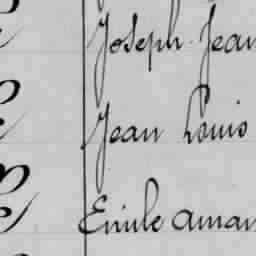 Joseph Jean
Jean Louis
Emile Aman